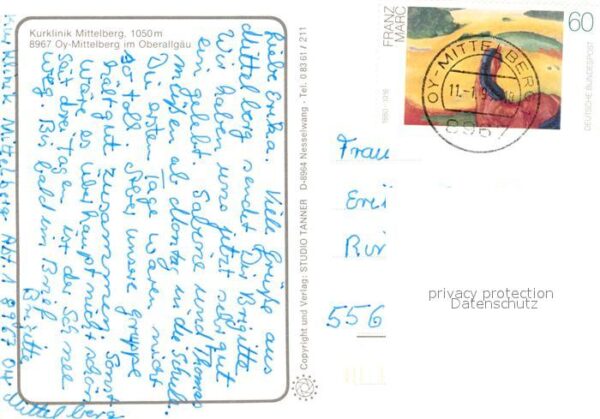 Kurklinik Mittelberg, 1050 m
8967 Oy-Mittelberg im Oberallgäu
Liebe Erika. Viele Grüße aus
Mittelberg sendet Dir Brigitte
Wir haben uns jetzt sehr gut
ein gelebt. Sabine und Thomas
müssen ab Montag in die Schule.
Die ersten Tage waren nicht
so toll. Aber unsere Gruppe
hält gut zusammen; Sonst
wäre es überhaupt nicht schön
seit drei Tagen ist der Schnee
weg. Bis bald im Brief
Brigitte
Kurklinik Mittelberg Abt. 1 8967 Oy Mittelberg
Copyright und Verlag: STUDIO TANNER D-8964 Nesselwang - Tel.: 0 83 61 / 211
FRANZ
MARC
1880-1916
60
DEUTSCHE BUNDESPOST
OY-MITTELBERG
8967
Frau
556
privacy protection
Datenschutz